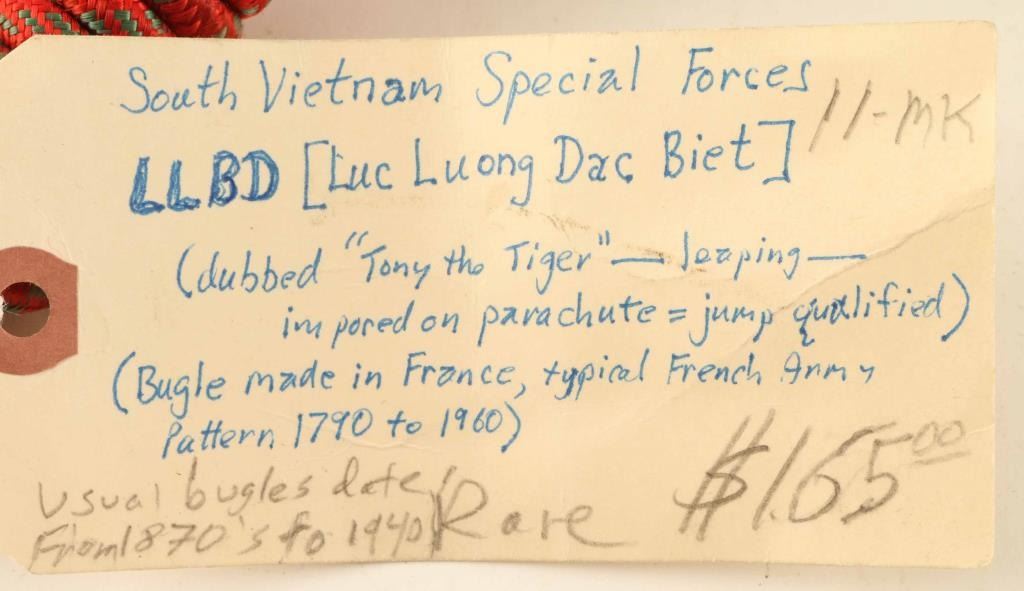 South Vietnam Special Forces
11-MK
LLBD [Luc Luong Dac Biet]
(dubbed "Tony the Tiger" — leaping —
impored on parachute = jump qualified)
(Bugle made in France, typical French Army
Pattern 1790 to 1960)
usual bugles date
From 1870's to 1940
Rare
$165.00